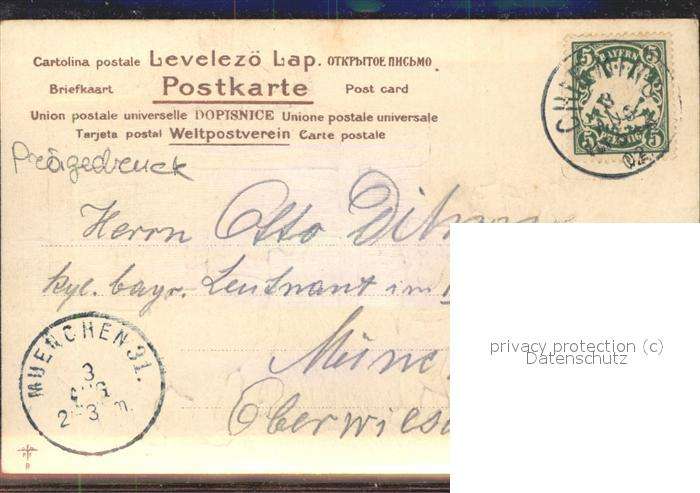 Cartolina postale Levelezö Lap. ОТКРЫТОЕ ПИСЬМО.
Briefkaart Postkarte Post card
Union postale universelle DOPISNICE Unione postale universale
Tarjeta postal Weltpostverein Carte postale
BAYERN
5 5
5 5
Prägedruck
Herrn Otto
kgl. bayr. Leutnant im
MUENCHEN 31.
3
AUG
2-3
Münc
Oberwies
privacy protection (c)
Datenschutz